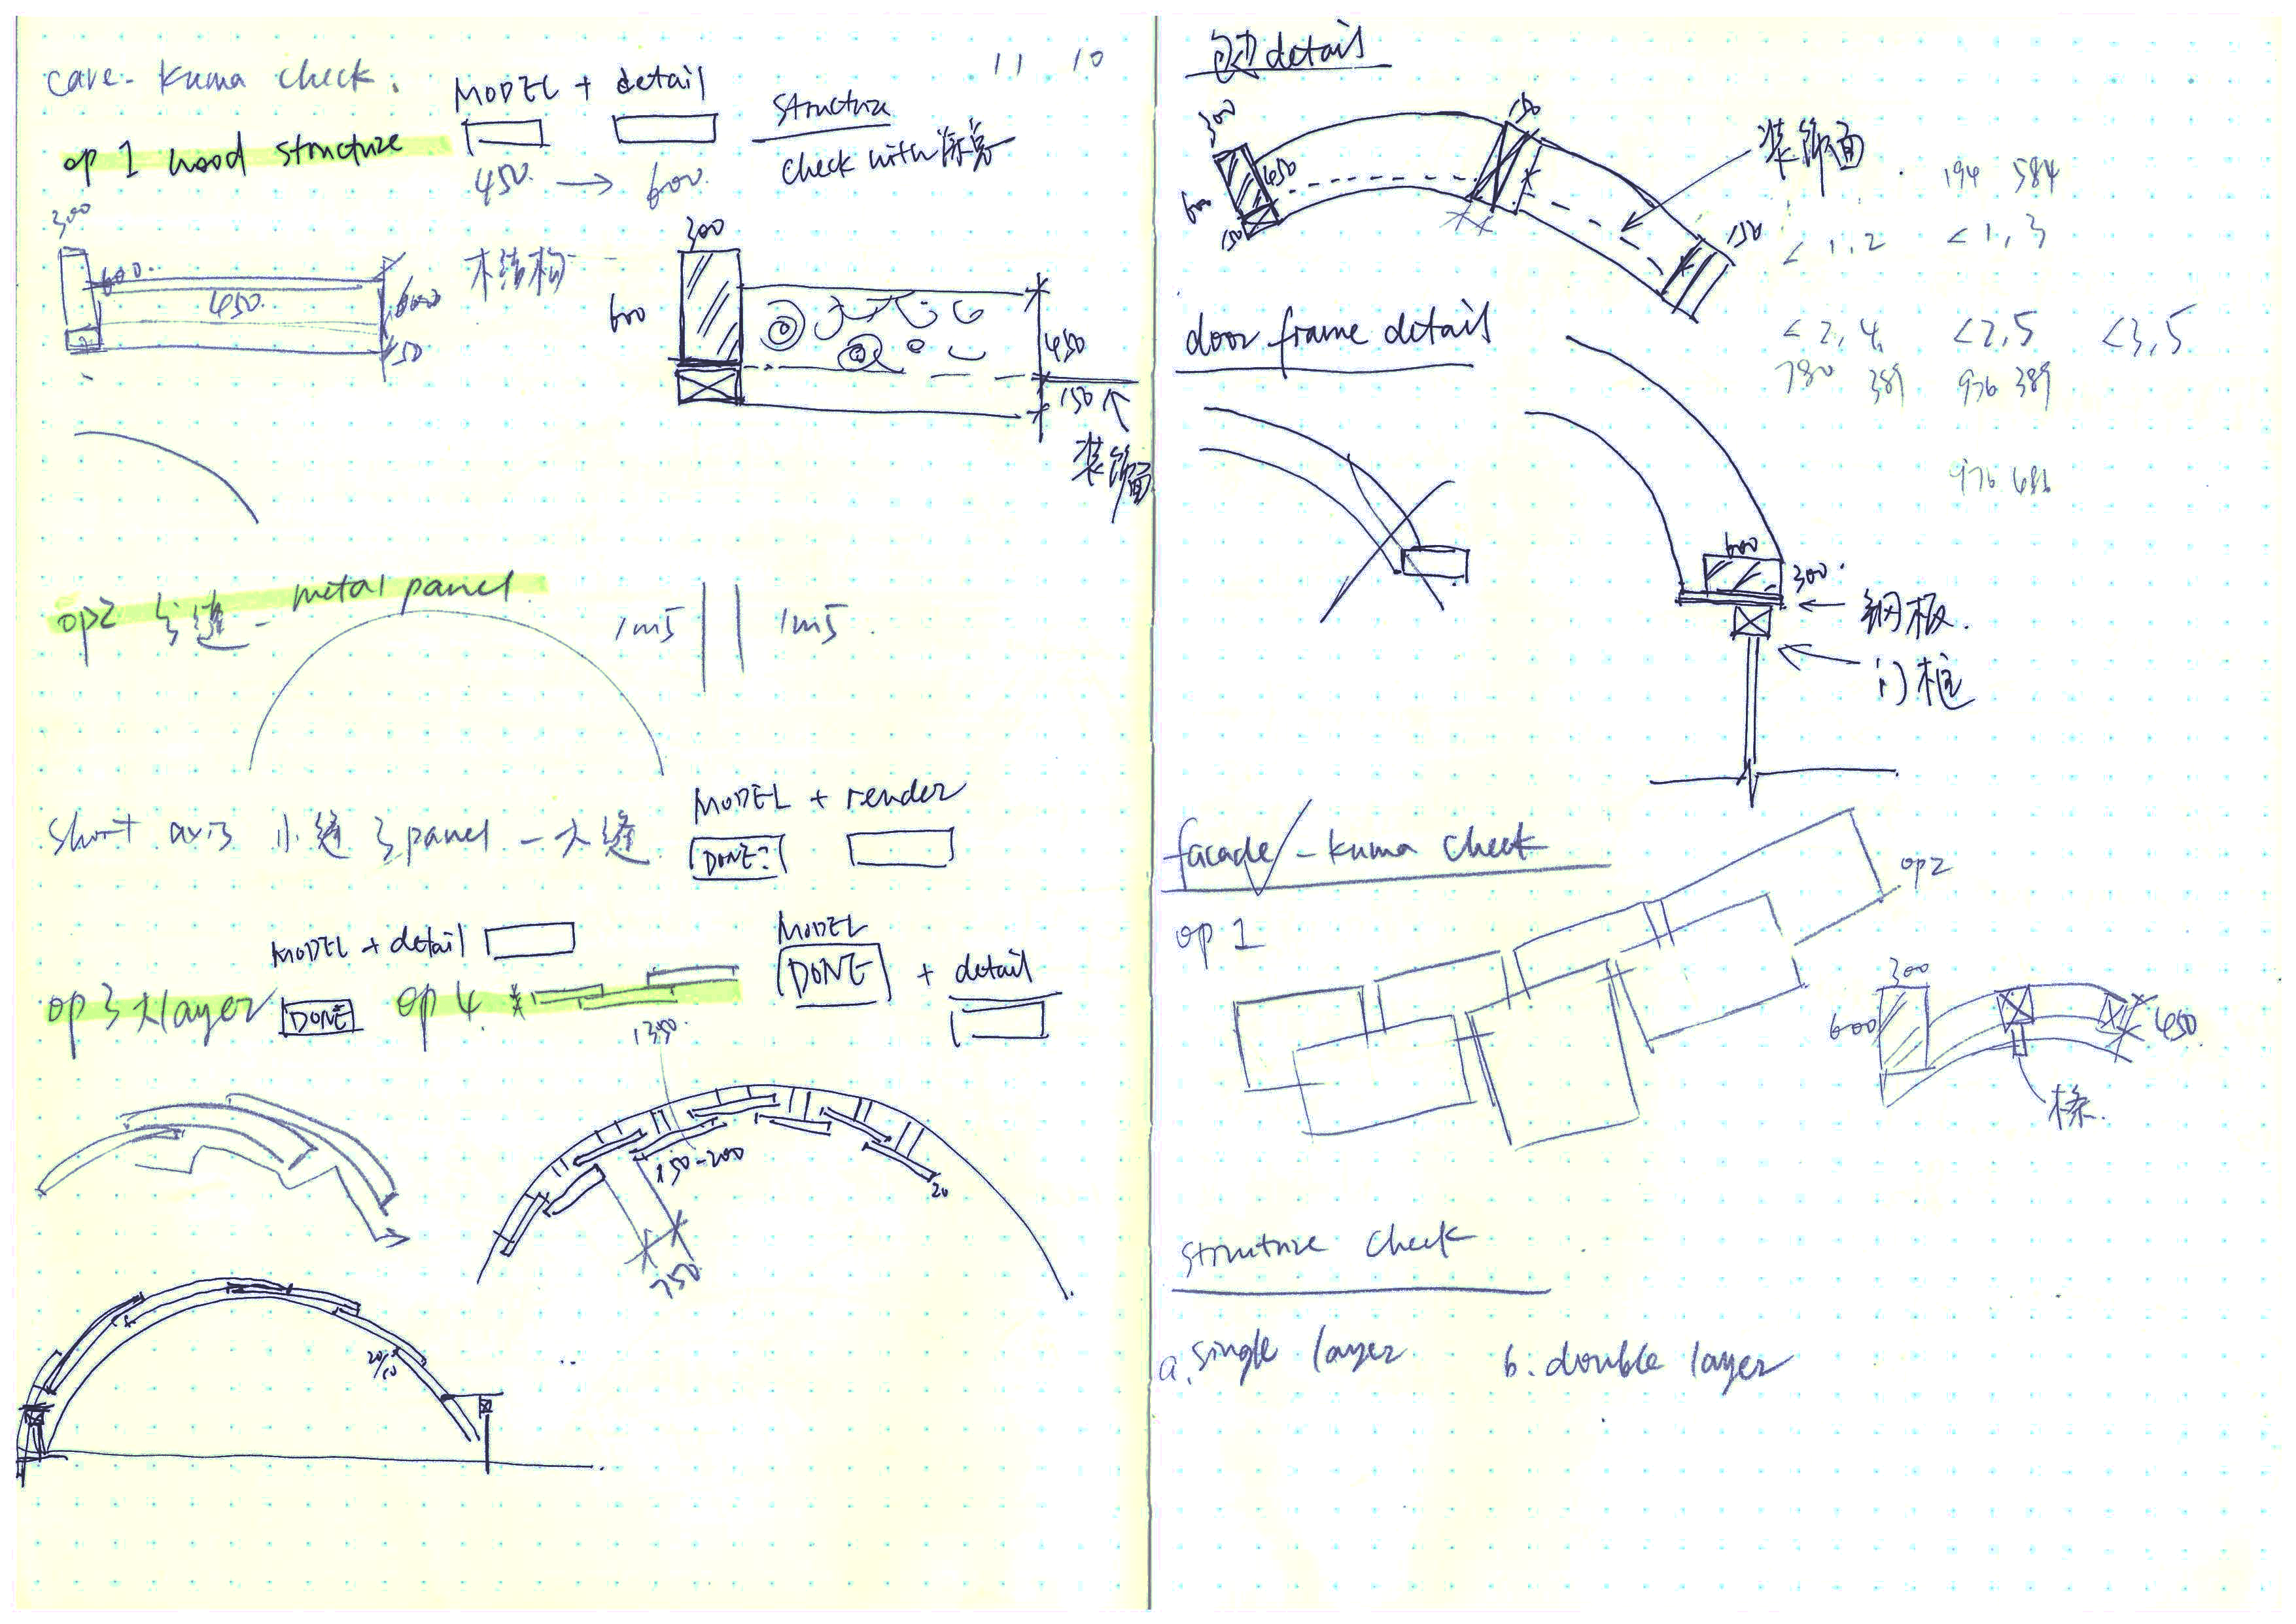 cave - kuma check.
11 10
MODEL + detail
op 1 wood structure
450 → 600
structure
check with
300
600
450
600
150
木结构
300
600
450
150
装饰面
op2 3缝 - metal panel
1m5 1m5
short axis 小缝 3panel - 大缝
MODEL + render
DONE?
MODEL + detail
op 3 大layer
DONE
op 4
MODEL
DONE
+ detail
1350
150-200
20
750
20/10
包边 detail
300
450
600
150
150
150
装饰面
194 584
<1,2 <1,3
<2,4 <2,5 <3,5
780 389 976 389
976 686
door frame detail
600
300
钢板
门框
facade - kuma check
op 1
op2
300
600
450
structure check
a. single layer b. double layer